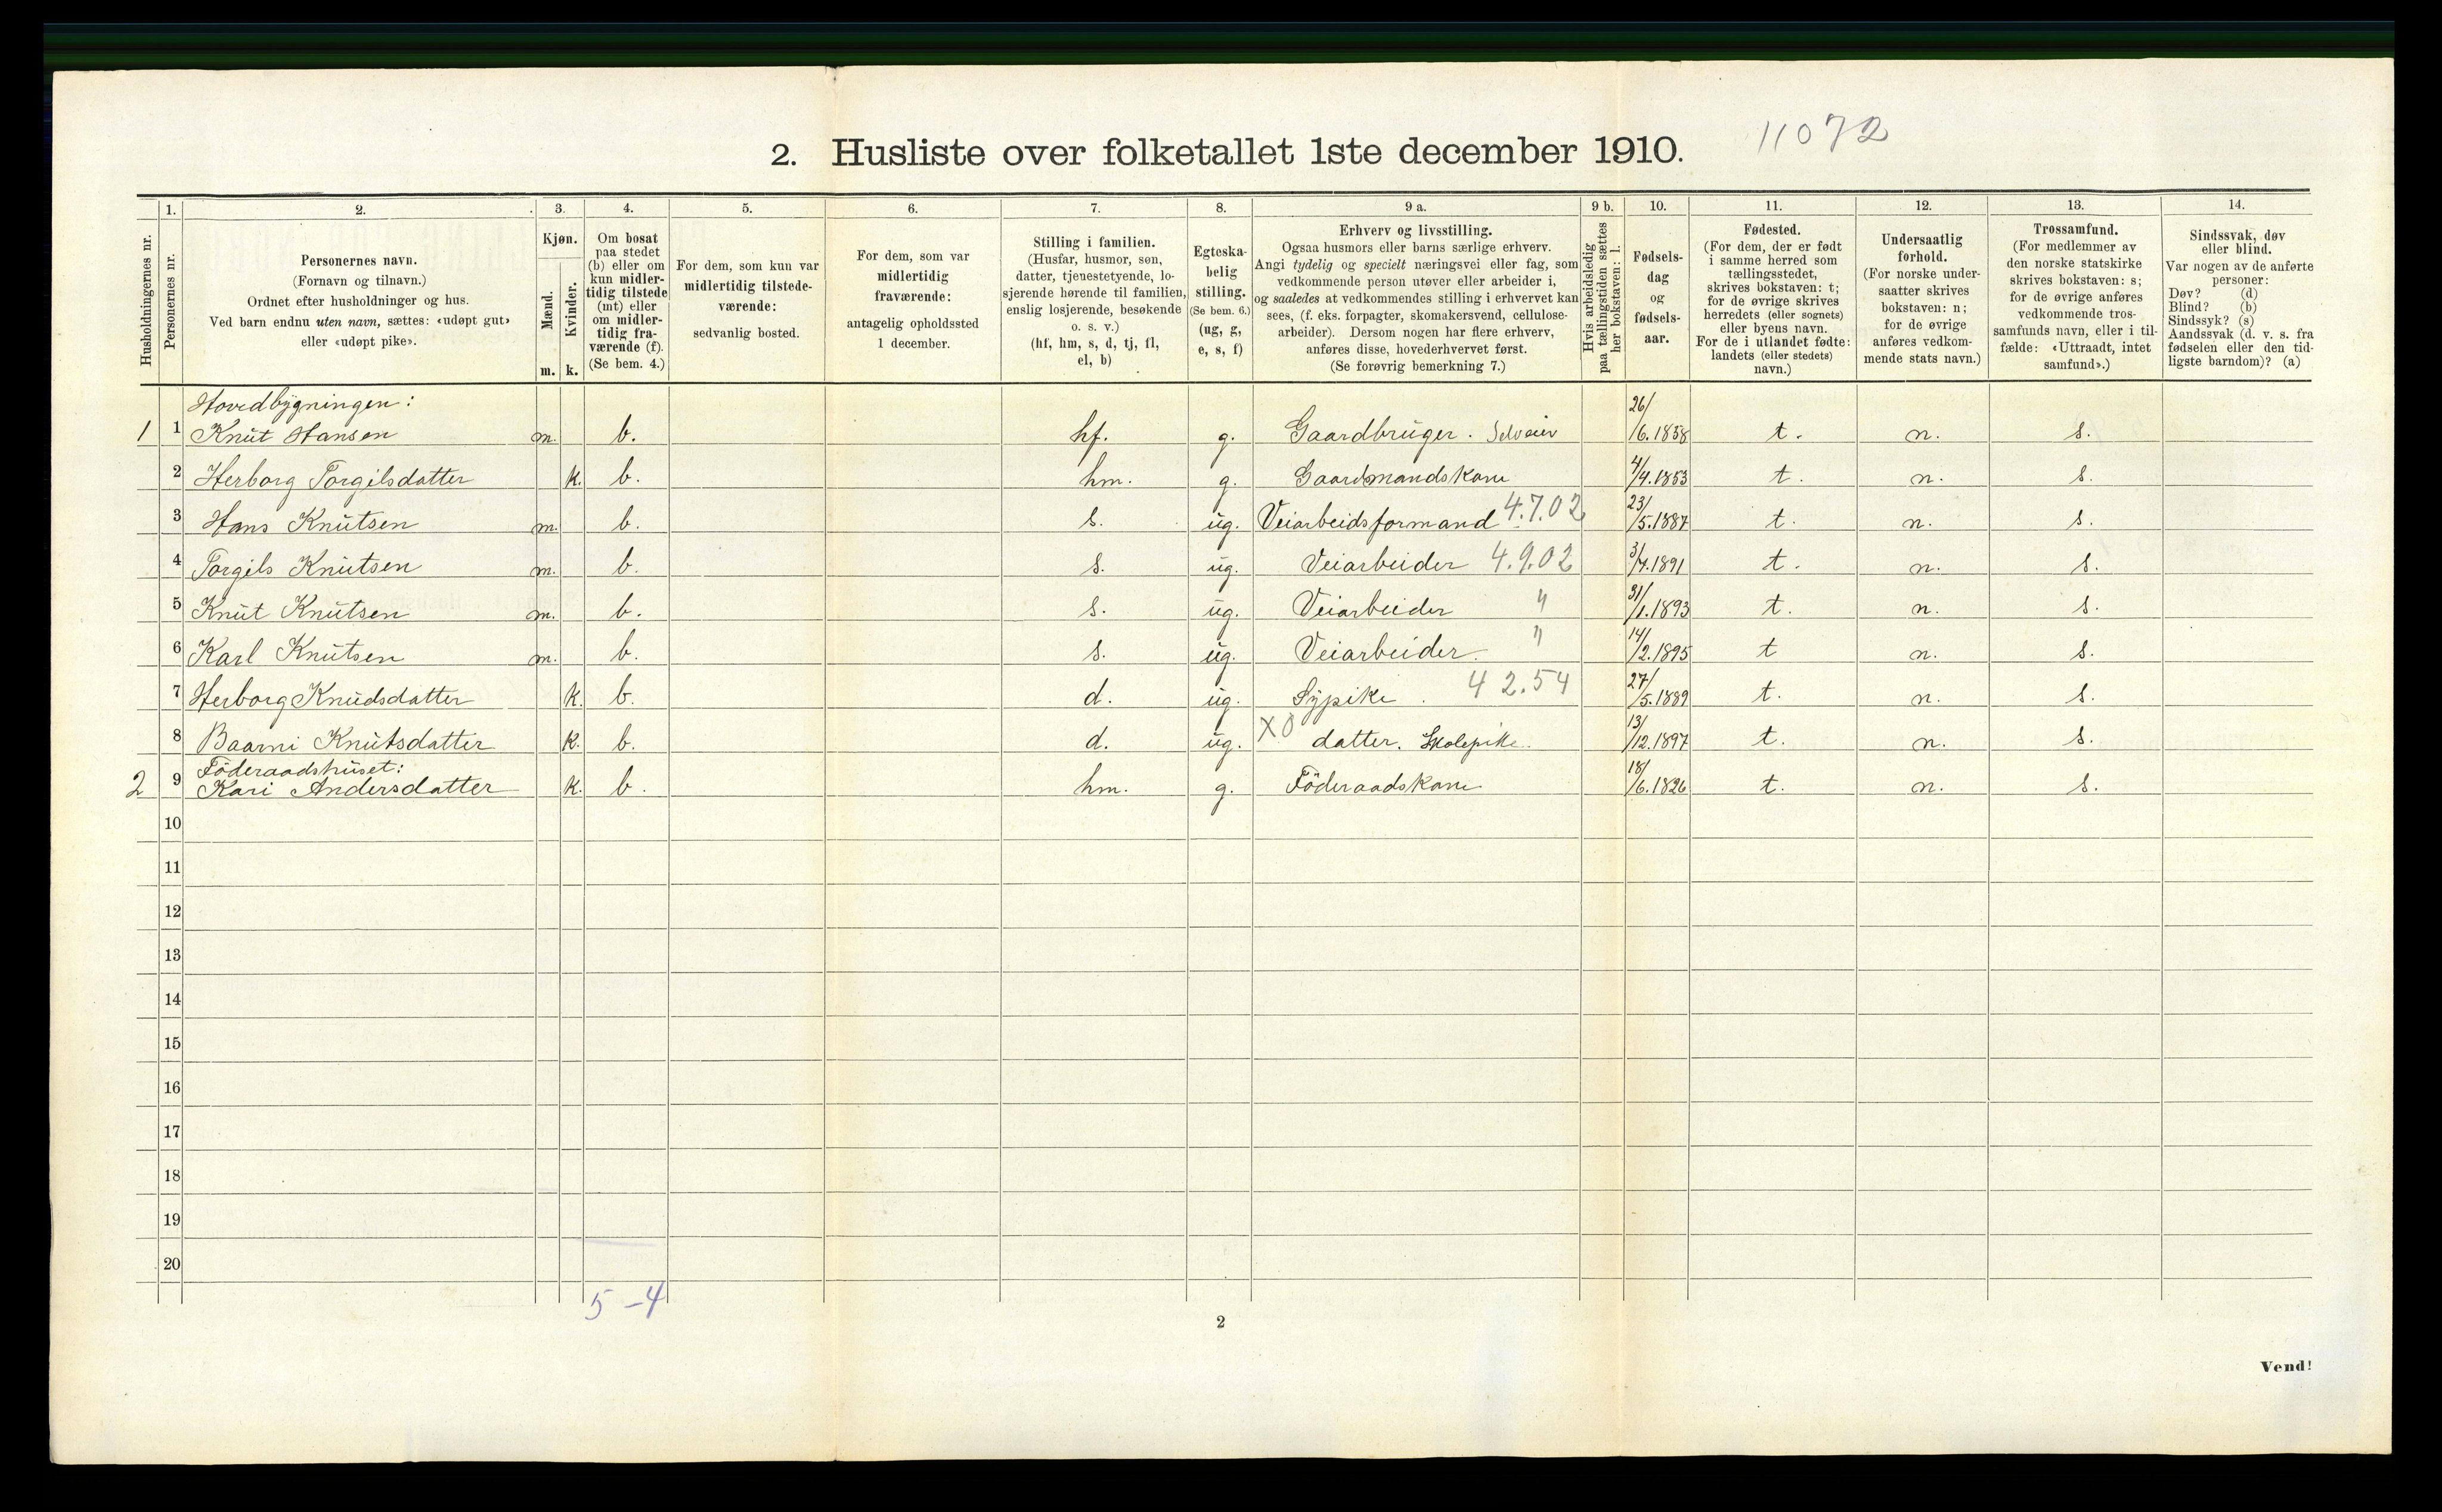 11072
2. Husliste over folketallet 1ste december 1910.
Husholdningernes nr.
1.
Personernes nr.
2.
Personernes navn.
(Fornavn og tilnavn.)
Ordnet efter husholdninger og hus.
Ved barn endnu uten navn, sættes: «udøpt gut»
eller «udøpt pike».
3.
Kjøn.
Mænd.
Kvinder.
m. k.
4.
Om bosat
paa stedet
(b) eller om
kun midler-
tidig tilstede
(mt) eller
om midler-
tidig fra-
værende (f).
(Se bem. 4.)
5.
For dem, som kun var
midlertidig tilstede-
værende:
sedvanlig bosted.
6.
For dem, som var
midlertidig
fraværende:
antagelig opholdssted
1 december.
7.
Stilling i familien.
(Husfar, husmor, søn,
datter, tjenestetyende, lo-
sjerende hørende til familien,
enslig losjerende, besøkende
o. s. v.)
(hf, hm, s, d, tj, fl,
el, b)
8.
Egteska-
belig
stilling.
(Se bem. 6.)
(ug, g,
e, s, f)
9 a.
Erhverv og livsstilling.
Ogsaa husmors eller barns særlige erhverv.
Angi tydelig og specielt næringsvei eller fag, som
vedkommende person utøver eller arbeider i,
og saaledes at vedkommendes stilling i erhvervet kan
sees, (f. eks. forpagter, skomakersvend, cellulose-
arbeider). Dersom nogen har flere erhverv,
anføres disse, hovederhvervet først.
(Se forøvrig bemerkning 7.)
9 b.
Hvis arbeidsledig
paa tællingstiden sættes
her bokstaven: l.
10.
Fødsels-
dag
og
fødsels-
aar.
11.
Fødested.
(For dem, der er født
i samme herred som
tællingsstedet,
skrives bokstaven: t;
for de øvrige skrives
herredets (eller sognets)
eller byens navn.
For de i utlandet fødte:
landets (eller stedets)
navn.)
12.
Undersaatlig
forhold.
(For norske under-
saatter skrives
bokstaven: n;
for de øvrige
anføres vedkom-
mende stats navn.)
13.
Trossamfund.
(For medlemmer av
den norske statskirke
skrives bokstaven: s;
for de øvrige anføres
vedkommende tros-
samfunds navn, eller i til-
fælde: «Uttraadt, intet
samfund».)
14.
Sindssvak, døv
eller blind.
Var nogen av de anførte
personer:
Døv? (d)
Blind? (b)
Sindssyk? (s)
Aandssvak (d. v. s. fra
fødselen eller den tid-
ligste barndom)? (a)
Hovedbygningen:
1 1 Knut Hansen m. b. hf. g. Gaardbruger. Selveier 26/6.1858 t. n. s.
2 Herborg Torgilsdatter k. b. hm. g. Gaardmandskone 4/4.1853 t. n. s.
3 Hans Knutsen m. b. s. ug. Veiarbeidsformand 4.7.02 23/5.1887 t. n. s.
4 Torgils Knutsen m. b. s. ug. Veiarbeider 4.9.02 3/4.1891 t. n. s.
5 Knut Knutsen m. b. s. ug. Veiarbeider " 31/1.1893 t. n. s.
6 Karl Knutsen m. b. s. ug. Veiarbeider. " 14/2.1895 t n. s.
7 Herborg Knudsdatter k. b. d. ug. Sypike. 42.54 27/5.1889 t. n. s.
8 Baarni Knutsdatter k. b. d. ug. X0 datter. Skolepike. 13/12.1897 t. n. s.
Föderaadshuset:
2 9 Kari Andersdatter k. b. hm. g. Föderaadskone 18/6.1826 t. n. s.
10
11
12
13
14
15
16
17
18
19
20
5-4
2
Vend!